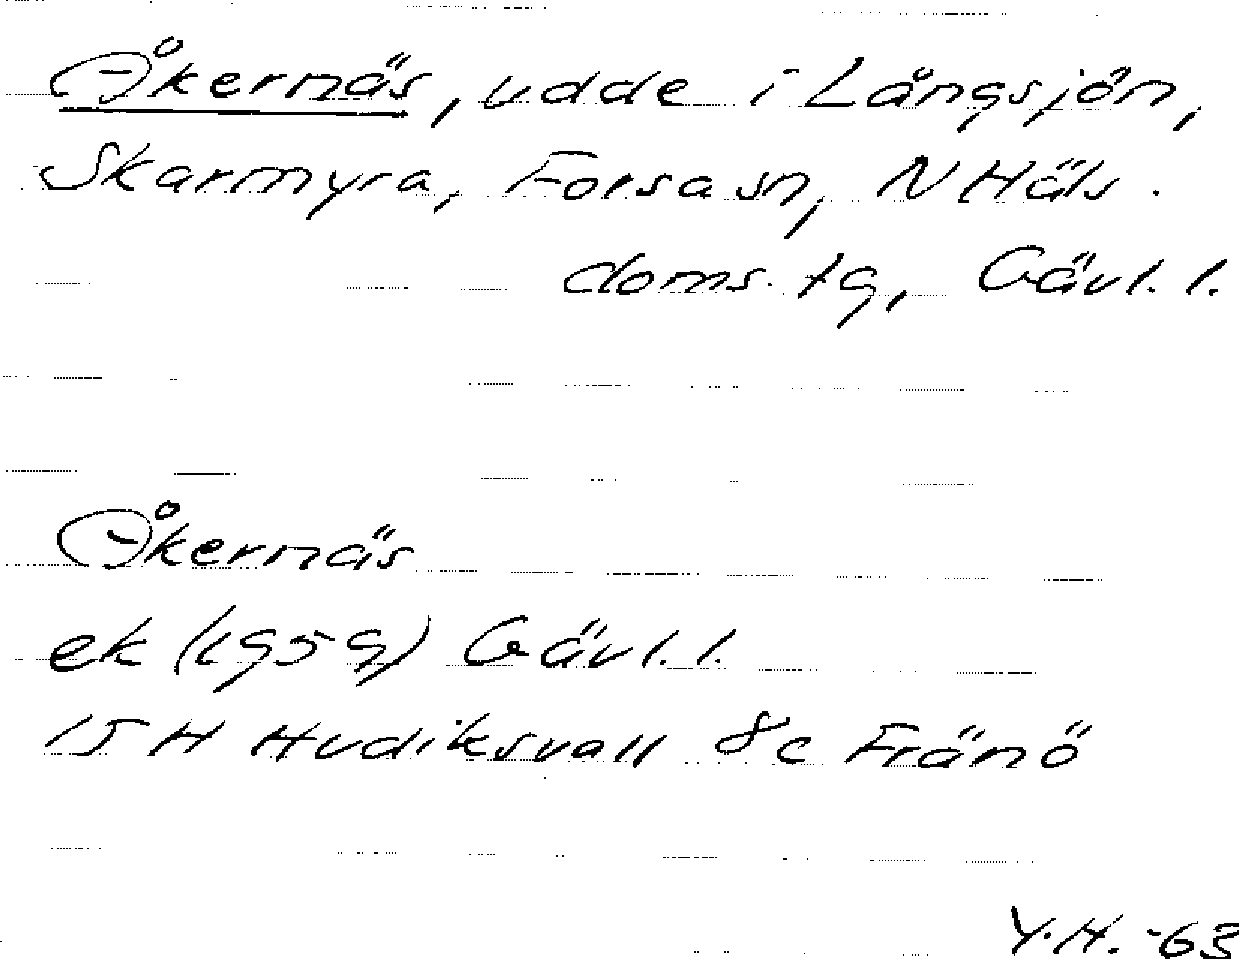 Åkernäs, udde i Långsjön,
Skarmyra, Forsa sn, N Häls.
doms. tg, Gävl. l.
Åkernäs
ek (1959) Gävl. l.
15 H Hudiksvall 8c Fränö
Y.H. -63